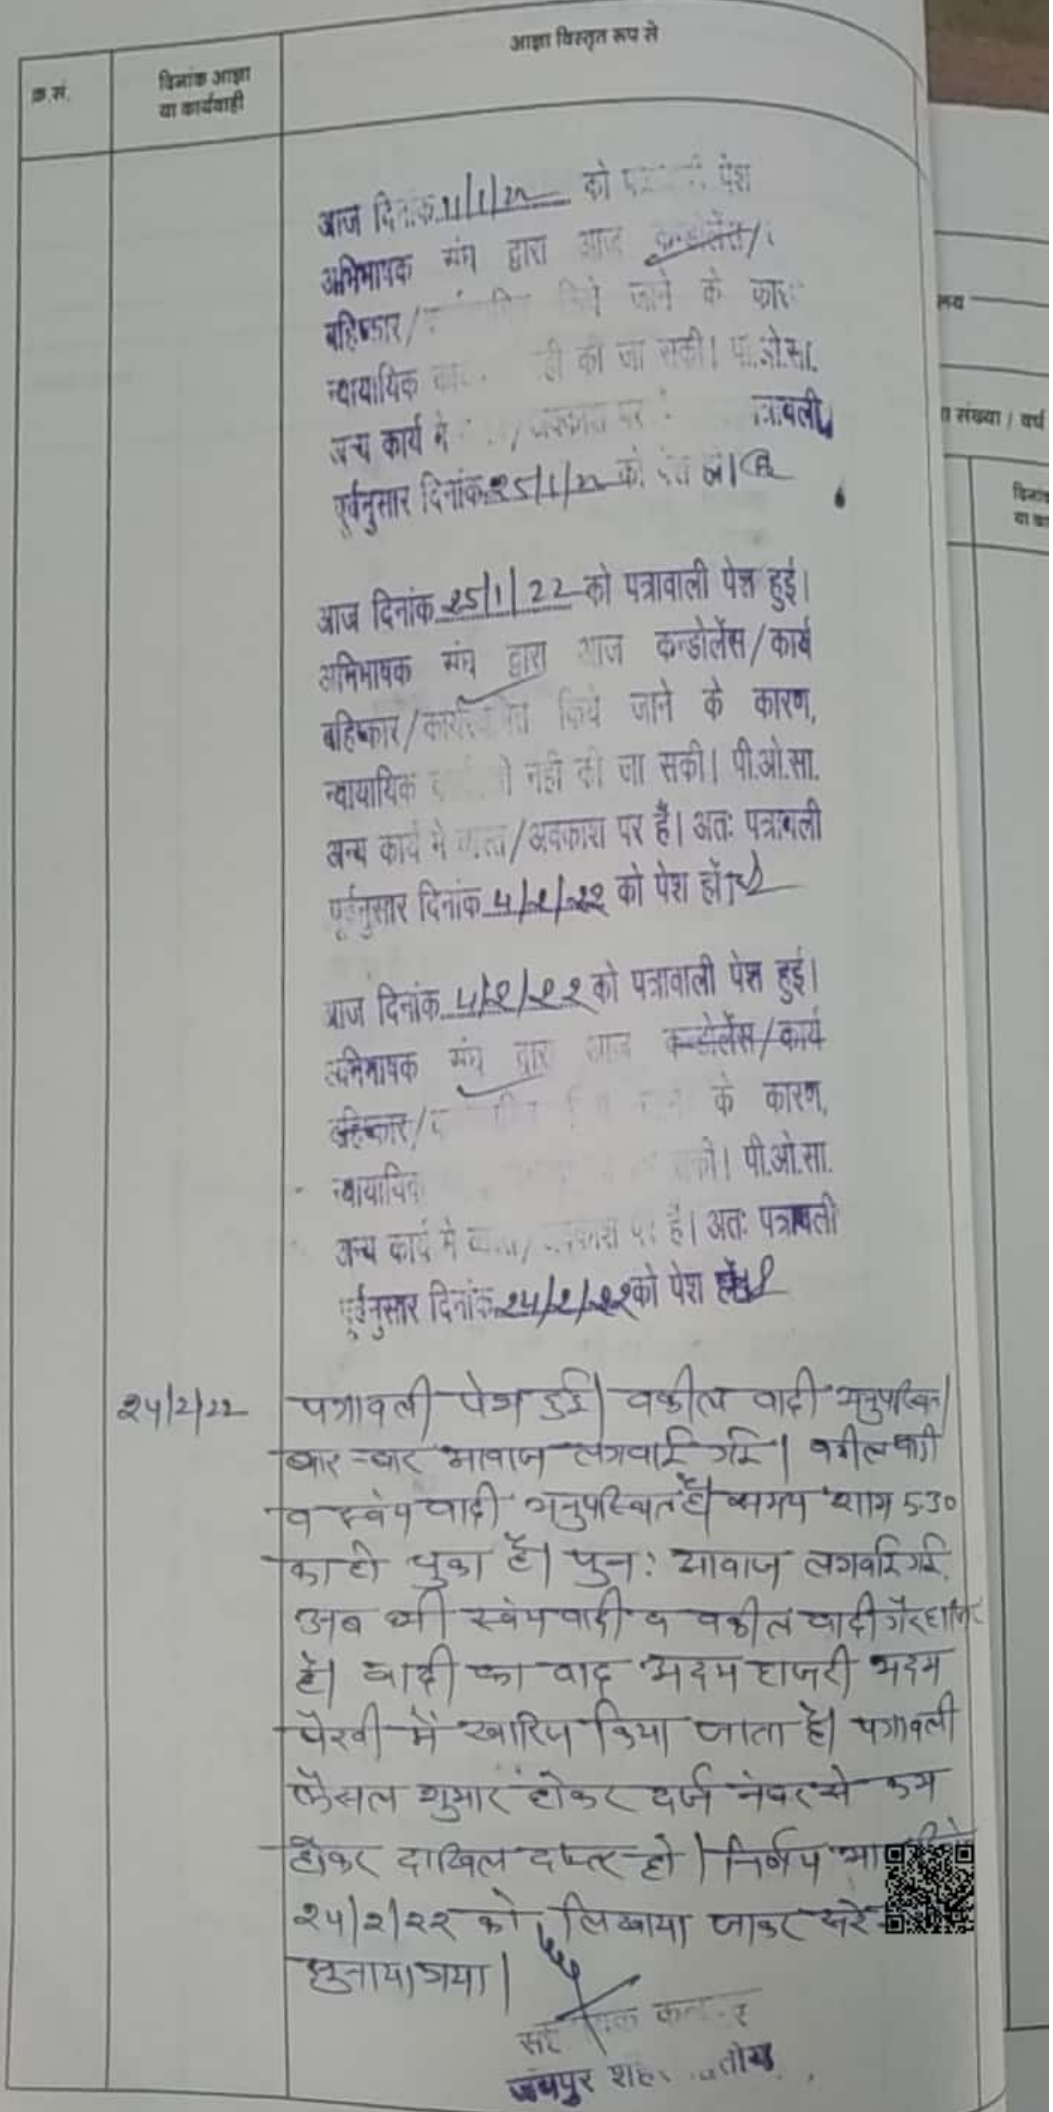 आज्ञा विस्तृत रूप से
क्र.सं.
दिनांक आज्ञा
या कार्यवाही
आज दिनांक 11/1/22 को पेश
अभिभाषक संघ द्वारा आज कन्डोलेंस/
बहिष्कार/ किये जाने के
न्यायायिक की जा सकी। पी.ओ.सा.
अन्य कार्य मे पर
पूर्वनुसार दिनांक 25/1/22 को पेश हो।
आज दिनांक 25/1/22 को पत्रावाली पेश हुई।
अभिभाषक संघ द्वारा आज कन्डोलेंस/कार्य
बहिष्कार/कार्यस्थगित किये जाने के कारण,
न्यायायिक नही की जा सकी। पी.ओ.सा.
अन्य कार्य मे व्यस्त/अवकाश पर है। अतः पत्रावली
पूर्वनुसार दिनांक 4/2/22 को पेश हों।
आज दिनांक 4/2/22 को पत्रावाली पेश हुई।
अभिभाषक संघ द्वारा आज कन्डोलेंस/कार्य
बहिष्कार/ के कारण,
न्यायायिक सकी। पी.ओ.सा.
अन्य कार्य मे व्यस्त/अवकाश पर है। अतः पत्रावली
पूर्वनुसार दिनांक 24/2/22 को पेश हों।
24/2/22 पत्रावली पेश हुई। वकील वादी अनुपस्थित।
बार-बार आवाज लगवाई गई। वकील वादी
व स्वंय वादी अनुपस्थित है। समय शाम 5.30
का हो चुका है। पुनः आवाज लगवाई गई,
अब भी स्वंय वादी व वकील वादी गैरहाजिर
है। वादी का वाद अदम हाजरी अदम
पैरवी में खारिज किया जाता है। पत्रावली
फैसल शुमार होकर दर्ज नंबर से कम
होकर दाखिल दफ्तर हो। निर्णय
24/2/22 को लिखाया जाकर सरे
सुनाया गया।
जयपुर शहर
संख्या / वर्ष